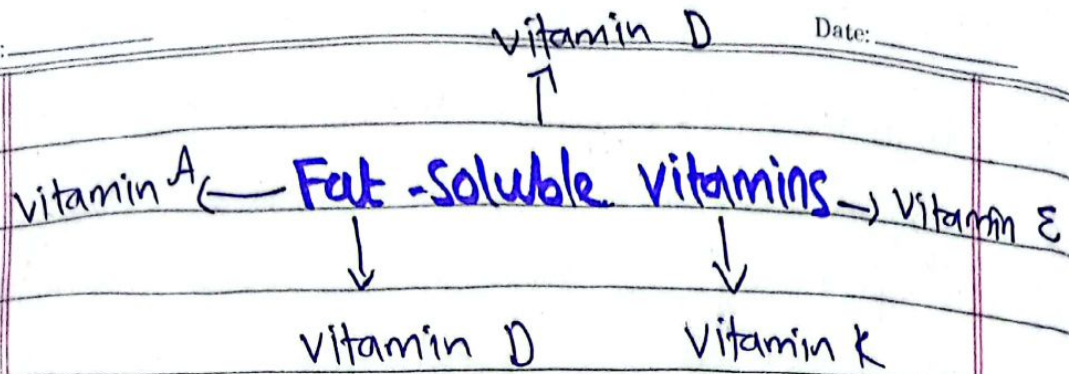 Date:
vitamin D
vitamin A ← Fat-soluble vitamins → vitamin E
vitamin D vitamin K